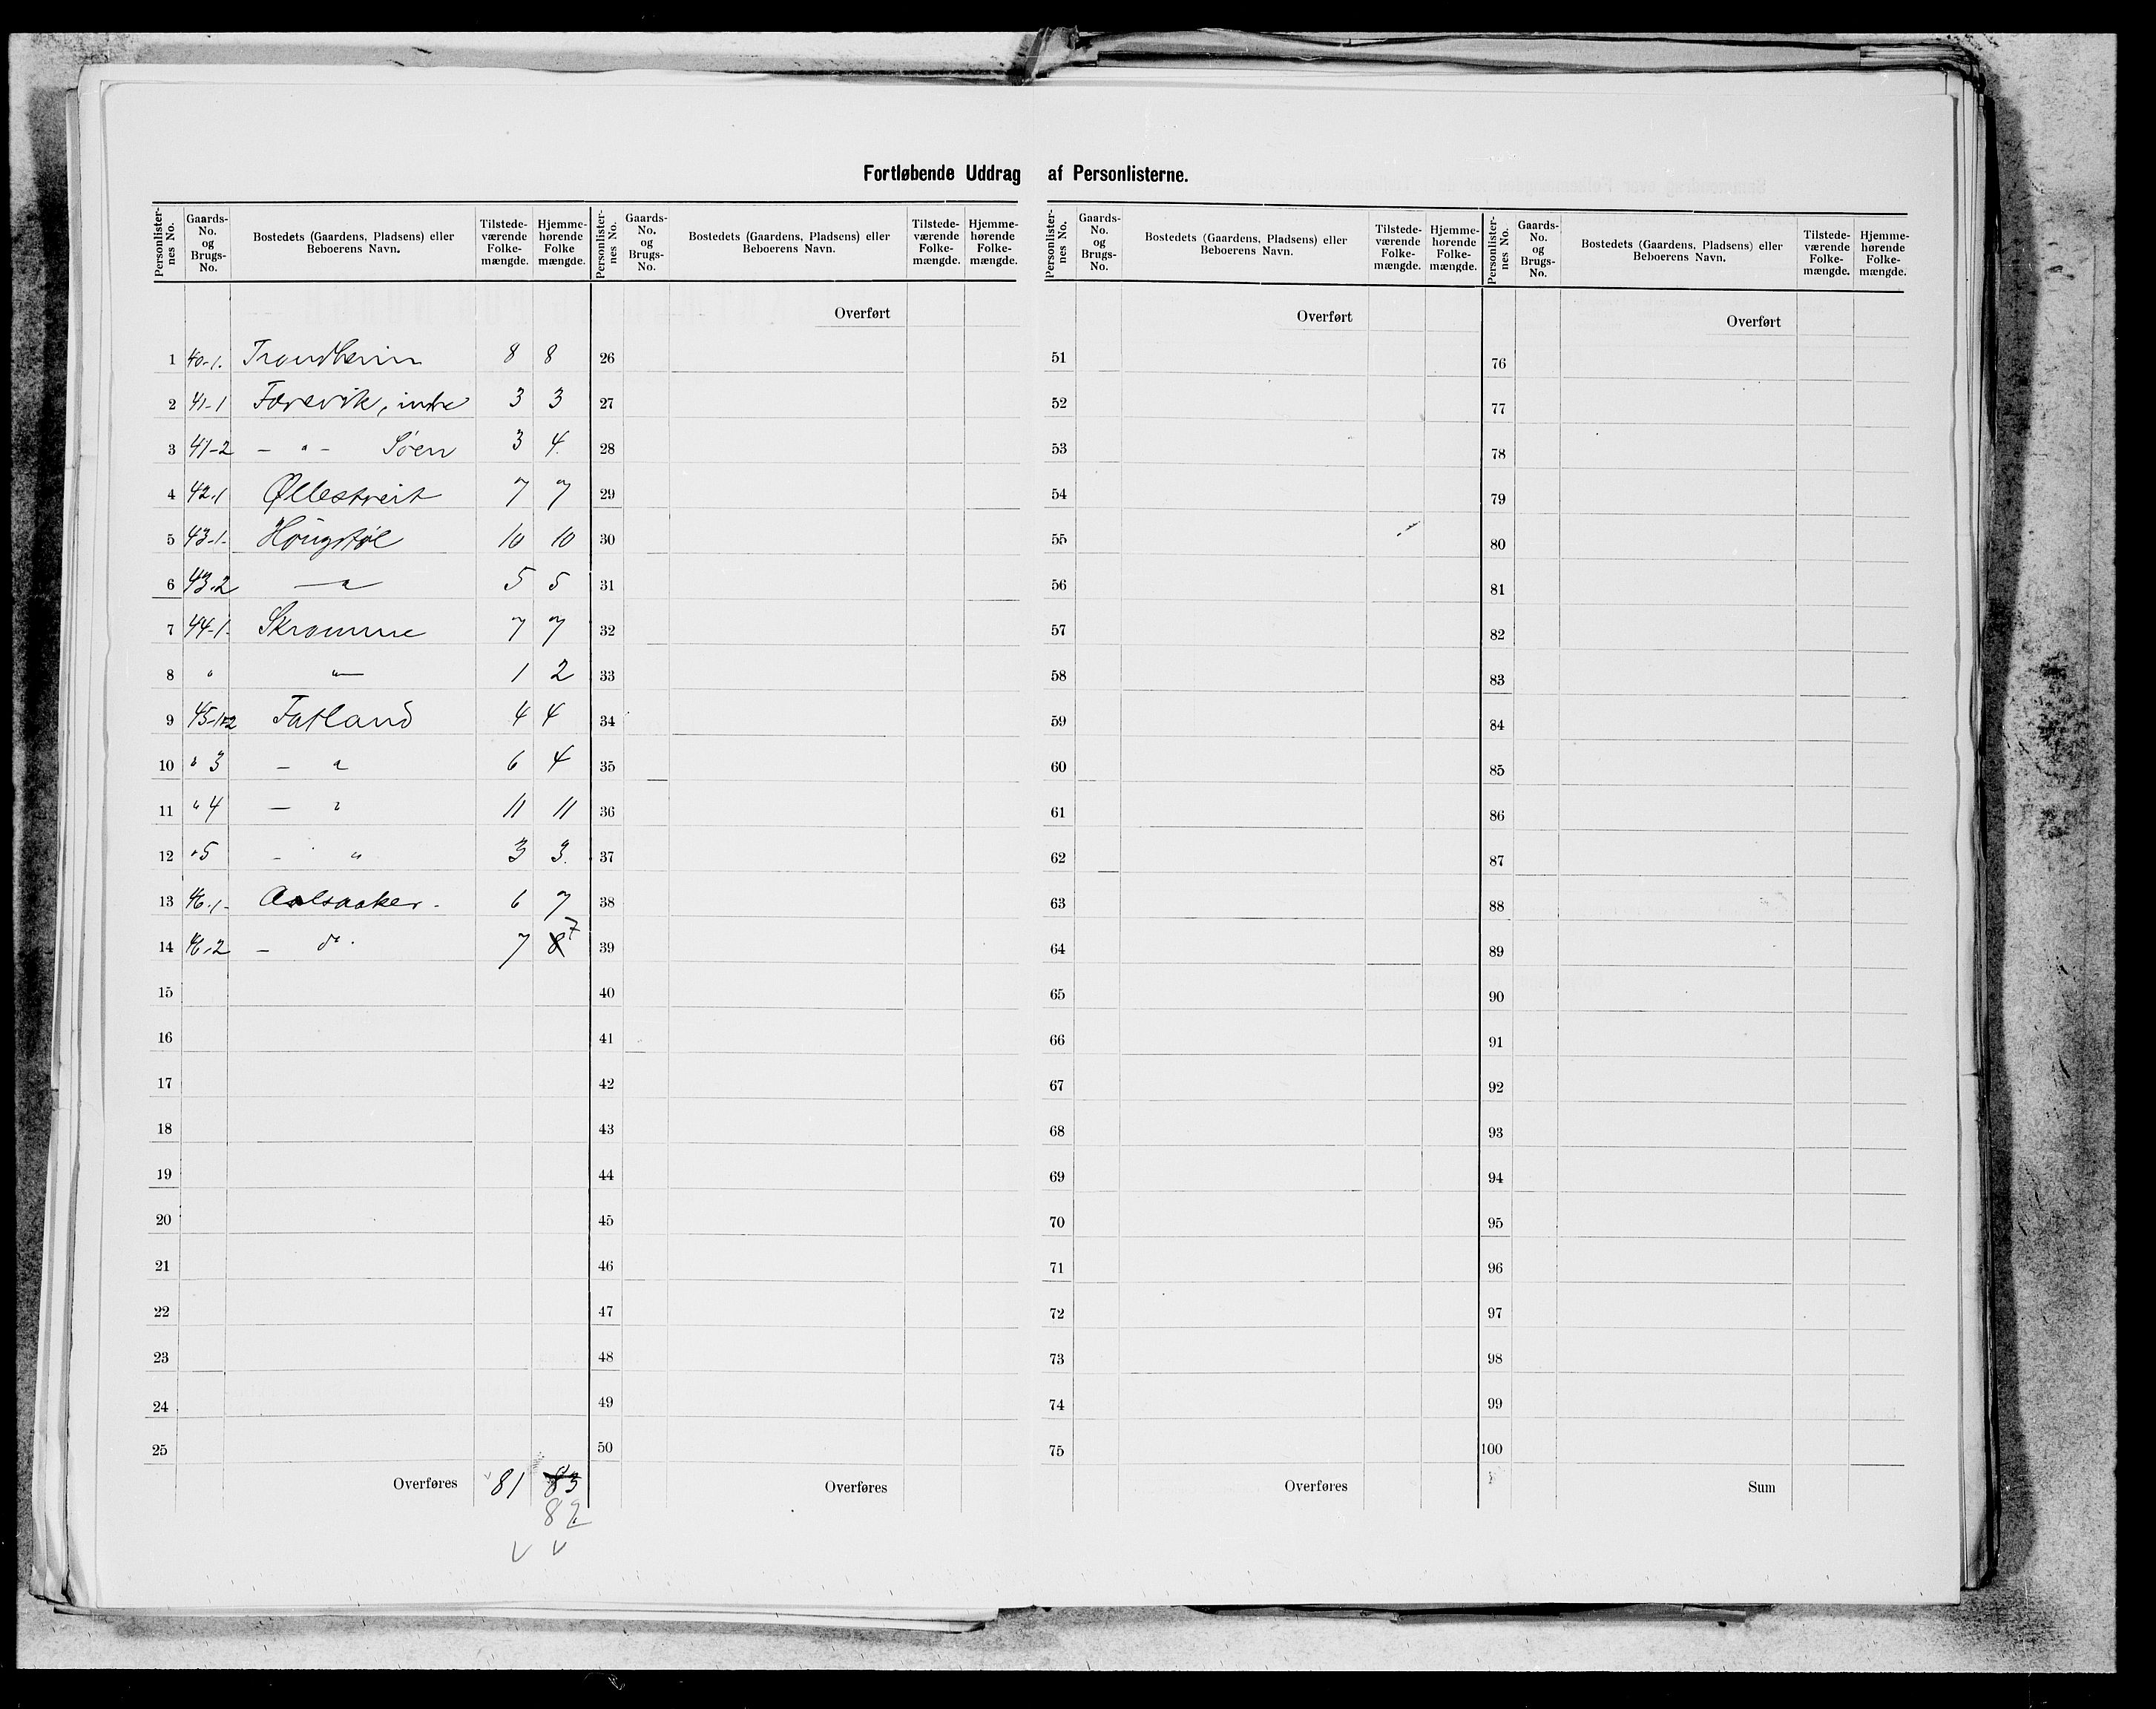 Fortløbende Uddrag af Personlisterne.
Personlister-nes No. | Gaards-No. og Brugs-No. | Bostedets (Gaardens, Pladsens) eller Beboerens Navn. | Tilstede-værende Folke-mængde. | Hjemme-hørende Folke mængde. | Personlister-nes No. | Gaards-No. og Brugs-No. | Bostedets (Gaardens, Pladsens) eller Beboerens Navn. | Tilstede-værende Folke-mængde. | Hjemme-hørende Folke-mængde. | Personlister-nes No. | Gaards-No. og Brugs-No. | Bostedets (Gaardens, Pladsens) eller Beboerens Navn. | Tilstede-værende Folke-mængde. | Hjemme-hørende Folke-mængde. | Personlister-nes No. | Gaards-No. og Brugs-No. | Bostedets (Gaardens, Pladsens) eller Beboerens Navn. | Tilstede-værende Folke-mængde. | Hjemme-hørende Folke-mængde.
Overført Overført Overført
1 40-1. Trondheim 8 8 26 51 76
2 41-1 Førevik, indre 3 3 27 52 77
3 41-2 - " - Søen 3 4. 28 53 78
4 42-1 Øllestveit 7 7 29 54 79
5 43-1- Høugstøl 10 10 30 55 80
6 43-2 — " 5 5 31 56 81
7 44-1- Skromme 7 7 32 57 82
8 " "— 1 2 33 58 83
9 45-1+2 Fatland 4 4 34 59 84
10 " 3 - " 6 4 35 60 85
11 " 4 — " 11 11 36 61 86
12 " 5 - " 3 3. 37 62 87
13 46-1- Aalsaaker - 6 7 38 63 88
14 46-2 - do. 7 8 7 39 64 89
15 40 65 90
16 41 66 91
17 42 67 92
18 43 68 93
19 44 69 94
20 45 70 95
21 46 71 96
22 47 72 97
23 48 73 98
24 49 74 99
25 50 75 100
Overføres 81 83 Overføres Overføres Sum
82